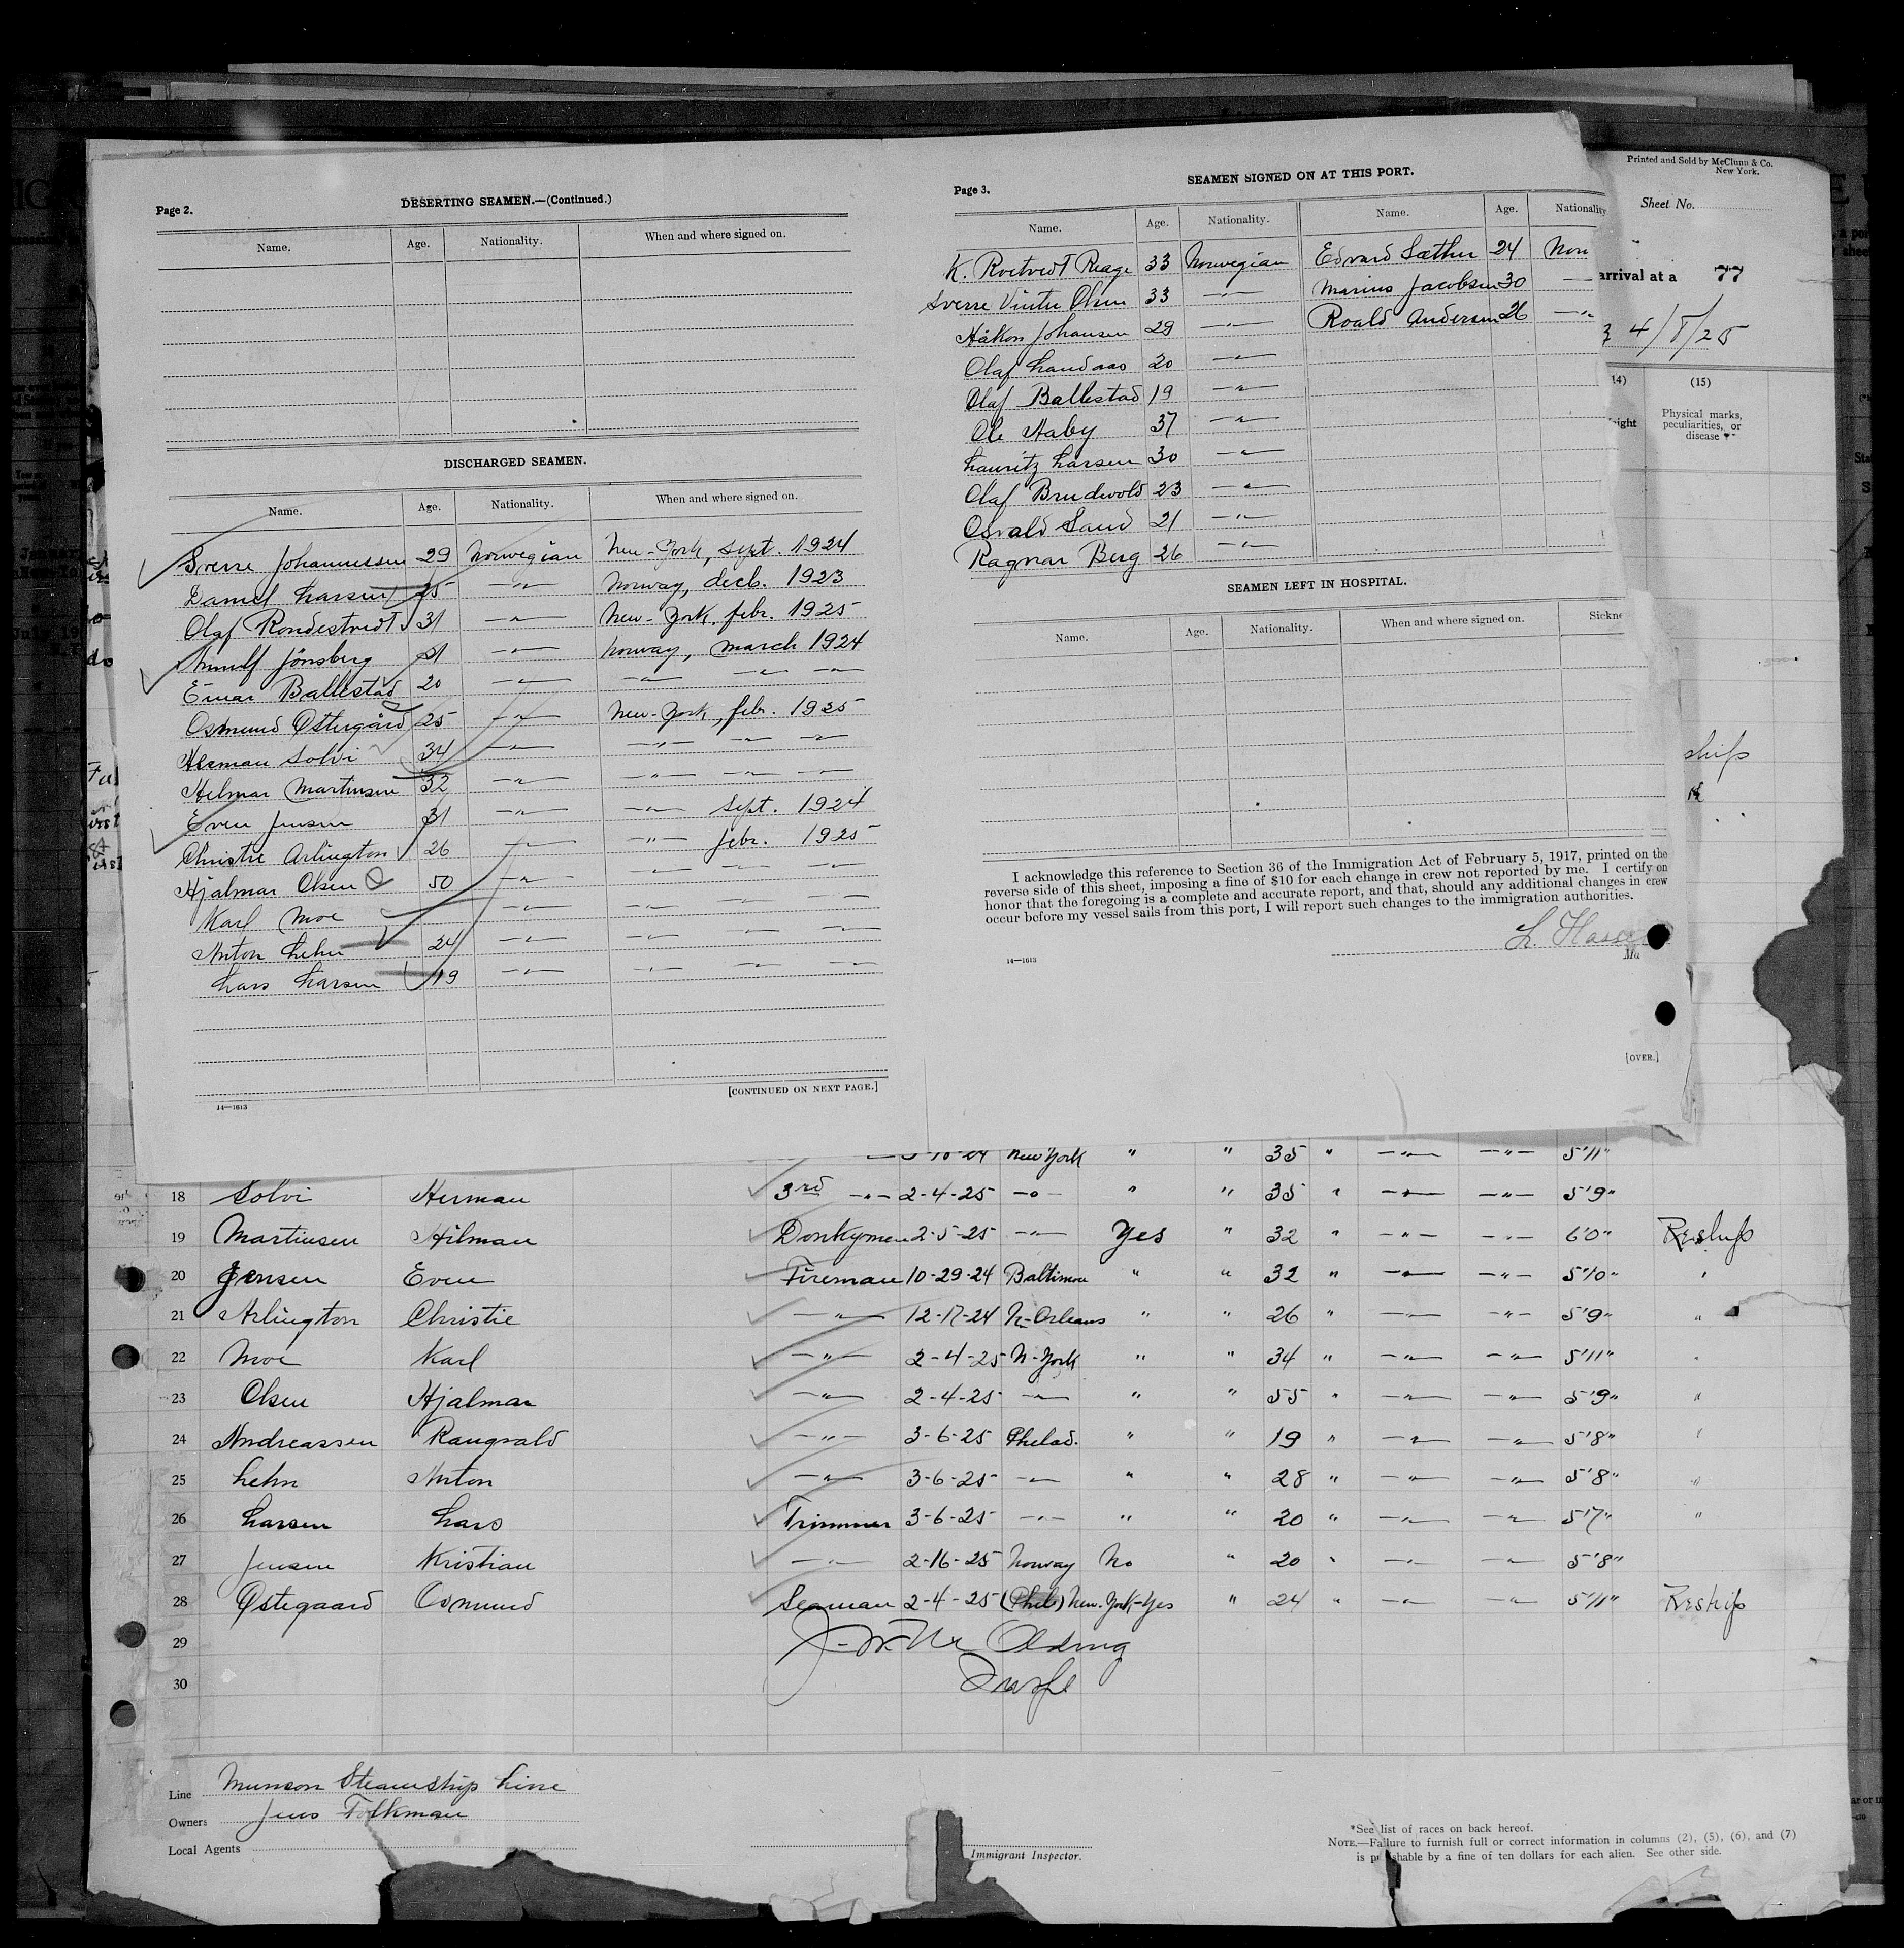 Page 2.
DESERTING SEAMEN.—(Continued.)
Name. Age. Nationality. When and where signed on.
DISCHARGED SEAMEN.
Name. Age. Nationality. When and where signed on.
Sverre Johannessen 29 Norwegian New-York, sept. 1924
Daniel Larsen 25 —"— Norway, decb. 1923
Olaf Rondestvedt 31 —"— New-York, febr. 1925
Jönsberg 31 —"— Norway, march 1924
Einar Ballestad 20 —"— —"— —"— —"—
Osmund Østergård 25 —"— New-York, febr. 1925
Herman Solvi 34 —"— —"— —"— —"—
Hilmar Martinsen 32 —"— —"— —"— —"—
Even Jensen 31 —"— —"— Sept. 1924
Christie Arlington 26 —"— —"— febr. 1925
Hjalmar Olsen 50 —"— —"— —"— —"—
Karl Moe —"— —"— —"— —"—
Anton Lehn 24 —"— —"— —"— —"—
Lars Larsen 19 —"— —"— —"— —"—
[CONTINUED ON NEXT PAGE.]
14—1613
Page 3.
SEAMEN SIGNED ON AT THIS PORT.
Name. Age. Nationality. Name. Age. Nationality
K. Roetvedt Reage 33 Norwegian Edvard Sæther 24 Nor
Sverre Vinter Olsen 33 —"— Marius Jacobsen 30 —
Håkon Johansen 29 —"— Roald Andersen 26 —"—
Olaf Landaas 20 —"—
Olaf Ballestad 19 —"—
Ole Aaby 37 —"—
Lauritz Larsen 30 —"—
Olaf Brudvold 23 —"—
Osvald Sand 21 —"—
Ragnar Berg 26 —"—
SEAMEN LEFT IN HOSPITAL.
Name. Age. Nationality. When and where signed on. Sickne
I acknowledge this reference to Section 36 of the Immigration Act of February 5, 1917, printed on the
reverse side of this sheet, imposing a fine of $10 for each change in crew not reported by me. I certify on
honor that the foregoing is a complete and accurate report, and that, should any additional changes in crew
occur before my vessel sails from this port, I will report such changes to the immigration authorities.
14—1613
Ma
[OVER.]
Printed and Sold by McClunn & Co.
New York.
Sheet No.
arrival at a 77
4/8/25
14) (15)
eight
Physical marks,
peculiarities, or
disease
ships
New York " " 35 " —"— —"— 5'11"
18 Solvi Herman 3rd —"— 2-4-25 —"— " " 35 " —"— —"— 5'9"
19 Martinsen Hilman Donkymen 2-5-25 —"— Yes " 32 " —"— —"— 6'0" Reship
20 Jensen Even Fireman 10-29-24 Baltimore " " 32 " —"— —"— 5'10" "
21 Arlington Christie —"— 12-17-24 N-Orleans " " 26 " —"— —"— 5'9" "
22 Moe Karl —"— 2-4-25 N-York " " 34 " —"— —"— 5'11" "
23 Olsen Hjalmar —"— 2-4-25 —"— " " 55 " —"— —"— 5'9" "
24 Andreassen Rangvald —"— 3-6-25 Philad. " " 19 " —"— —"— 5'8" "
25 Lehn Anton —"— 3-6-25 —"— " " 28 " —"— —"— 5'8" "
26 Larsen Lars Trimmer 3-6-25 —"— " " 20 " —"— —"— 5'7" "
27 Jensen Kristian —"— 2-16-25 Norway No " 20 " —"— —"— 5'8"
28 Østegaard Osmund Seaman 2-4-25 (Phil) New-York-Yes " 24 " —"— —"— 5'11" Reship
29
30
Line Munson Steamship Line
Owners Jens Folkman
Local Agents
Immigrant Inspector.
*See list of races on back hereof.
NOTE.—Failure to furnish full or correct information in columns (2), (5), (6), and (7)
is punishable by a fine of ten dollars for each alien. See other side.